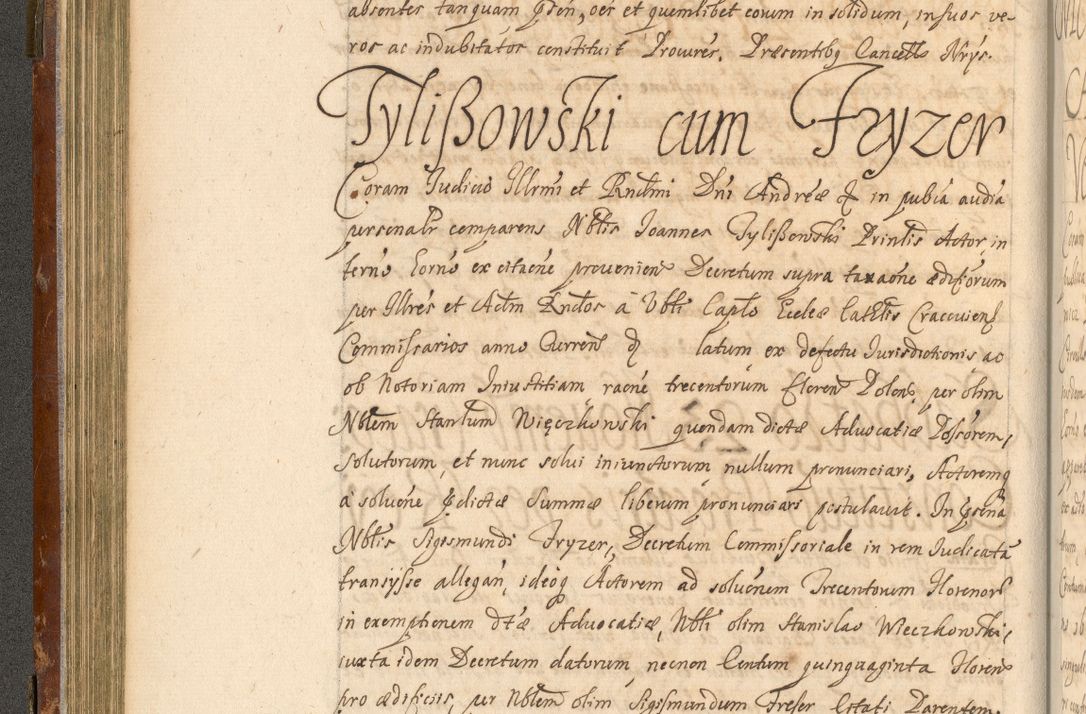 absentes tanquam p̃sen, oẽs et quemlibet eorum in solidum, in suos ve-
ros ac indubitatos constituit Procures, Præsentibꝫ Cancell̃s Nrýs.
Tylißowski cum Fryzer
Coram Iudicio Illrmi et Rndmi Dni Andreæ & in pubca audia
personalr comparens Nbtis Joannes Tylißowski Prinlis Actor, in
termo Eorno ex citaone provenien Decretum supra taxaone ædificiorum
per Illres et Adm Rndos à Vbli Caplo Eccleæ Cathlis Cracovien
Commissarios anno Curren d latum ex defectu Iurisdictionis ac
ob Notoriam Iniustitiam raone trecentorum Floren Polon, per olim
Nblem Stanlum Więczkowski quondam dictæ Advocatiæ Possorem,
solutorum, et nunc solvi iniunctorum, nullum pronunciari, Actoremꝗ
à solvõne p̃dictæ Summæ liberum pronunciari postulavit. In p̃sona
Nblis Sigismundi Fryzer, Decretum Commissoriale in rem Iudicatã
transijsse allegan, ideoꝗ Actorem ad solvõnem Trecentorum Florenor
in exemptionem dtæ Advocatiæ, Nbli olim Stanislao Wieczkowski,
iuxta idem Decretum datorum, necnon Centum quinquaginta Floren
pro ædificijs, per Nblem olim Sigismundum Freser Citati Parentem